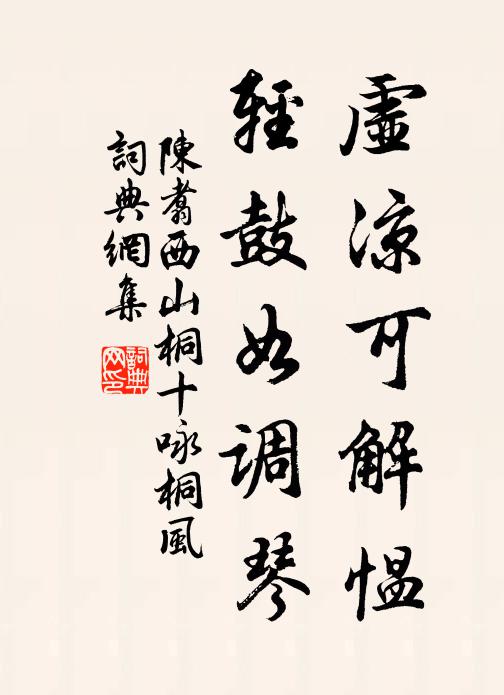 虛涼可解愠
輕鼓如調琴
陳翥西山桐十咏桐風
詞典網集
詞典网印